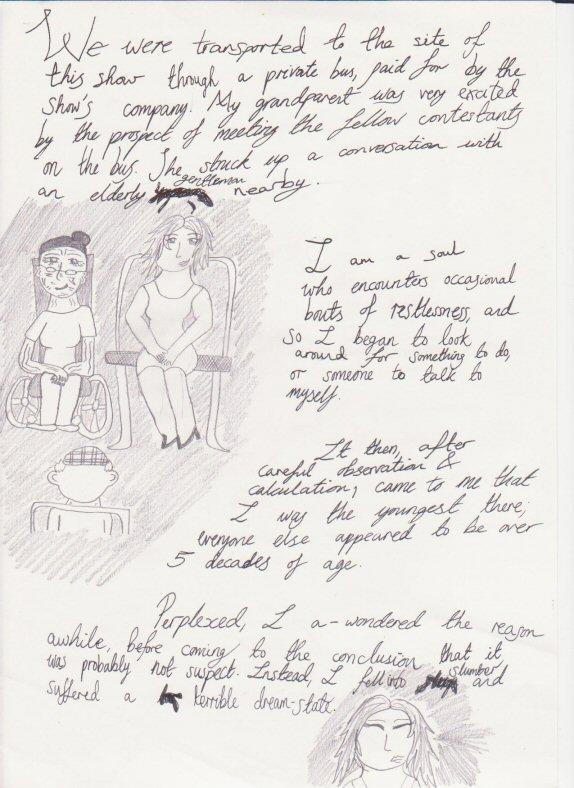 We were transported to the site of
this show through a private bus, paid for by the
show's company. My grandparent was very excited
by the prospect of meeting the fellow contestants
on the bus. She struck up a conversation with
gentleman
an elderly nearby.
I am a soul
who encounters occasional
bouts of restlessness, and
so I began to look
around for something to do,
or someone to talk to
myself.
It then, after
careful observation &
calculation, came to me that
I was the youngest there;
everyone else appeared to be over
5 decades of age.
Perplexed, I a-wondered the reason
awhile, before coming to the conclusion that it
was probably not suspect. Instead, I fell into slumber and
suffered a terrible dream-state.